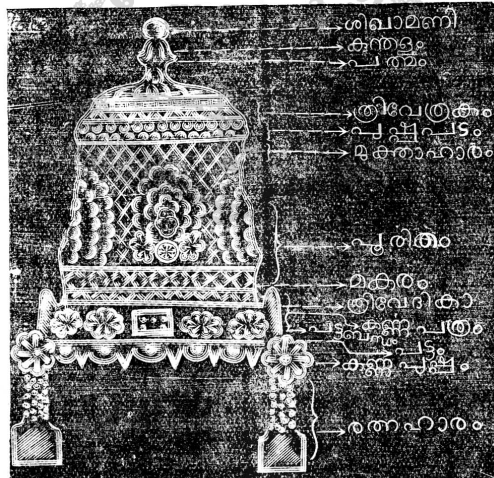 ശിഖാമണി
കുന്തളം
പത്മം
ത്രിവേത്രകം
പുഷ്പപടം
മുക്താഹാരം
പൂരിതം
മകരം
ത്രിവേദികാ
കണ്ണപത്രം
പട്ടം
കണ്ണപുഷ്പം
രത്നഹാരം